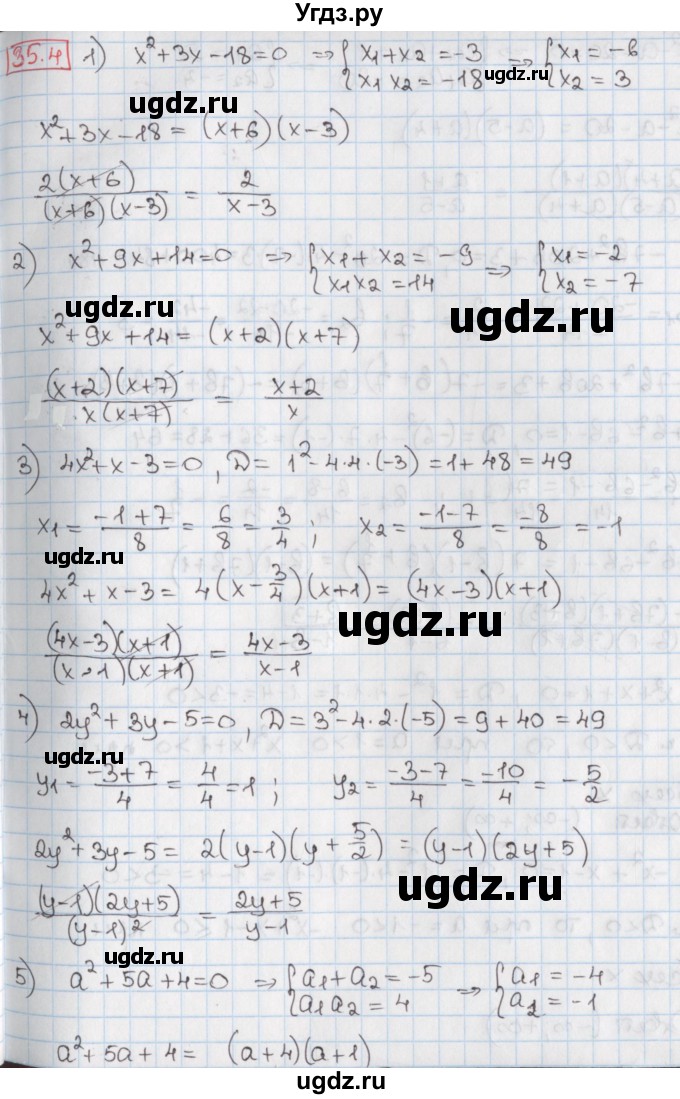 Угдз.ру
35.4 1) x²+3x-18=0 ⇒ {x₁+x₂=-3 x₁x₂=-18 ⇒ {x₁=-6 x₂=3
ugdz.ru
ugdz.ru
x²+3x-18=(x+6)(x-3)
2(x+6)/(x+6)(x-3) = 2/(x-3)
2) x²+9x+14=0 ⇒ {x₁+x₂=-9 x₁x₂=14 ⇒ {x₁=-2 x₂=-7
ugdz.ru
ugdz.ru
x²+9x+14=(x+2)(x+7)
(x+2)(x+7)/x(x+7) = (x+2)/x
3) 4x²+x-3=0, D=1²-4·4·(-3)=1+48=49
x₁=(-1+7)/8=6/8=3/4; x₂=(-1-7)/8=-8/8=-1
ugdz.ru
4x²+x-3=4(x-3/4)(x+1)=(4x-3)(x+1)
ugdz.ru
(4x-3)(x+1)/(x-1)(x+1) = (4x-3)/(x-1)
4) 2y²+3y-5=0, D=3²-4·2·(-5)=9+40=49
y₁=(-3+7)/4=4/4=1; y₂=(-3-7)/4=-10/4=-5/2
ugdz.ru
2y²+3y-5=2(y-1)(y+5/2)=(y-1)(2y+5)
ugdz.ru
(y-1)(2y+5)/(y-1)² = (2y+5)/(y-1)
ugdz.ru
5) a²+5a+4=0 ⇒ {a₁+a₂=-5 a₁a₂=4 ⇒ {a₁=-4 a₂=-1
a²+5a+4=(a+4)(a+1)
ugdz.ru